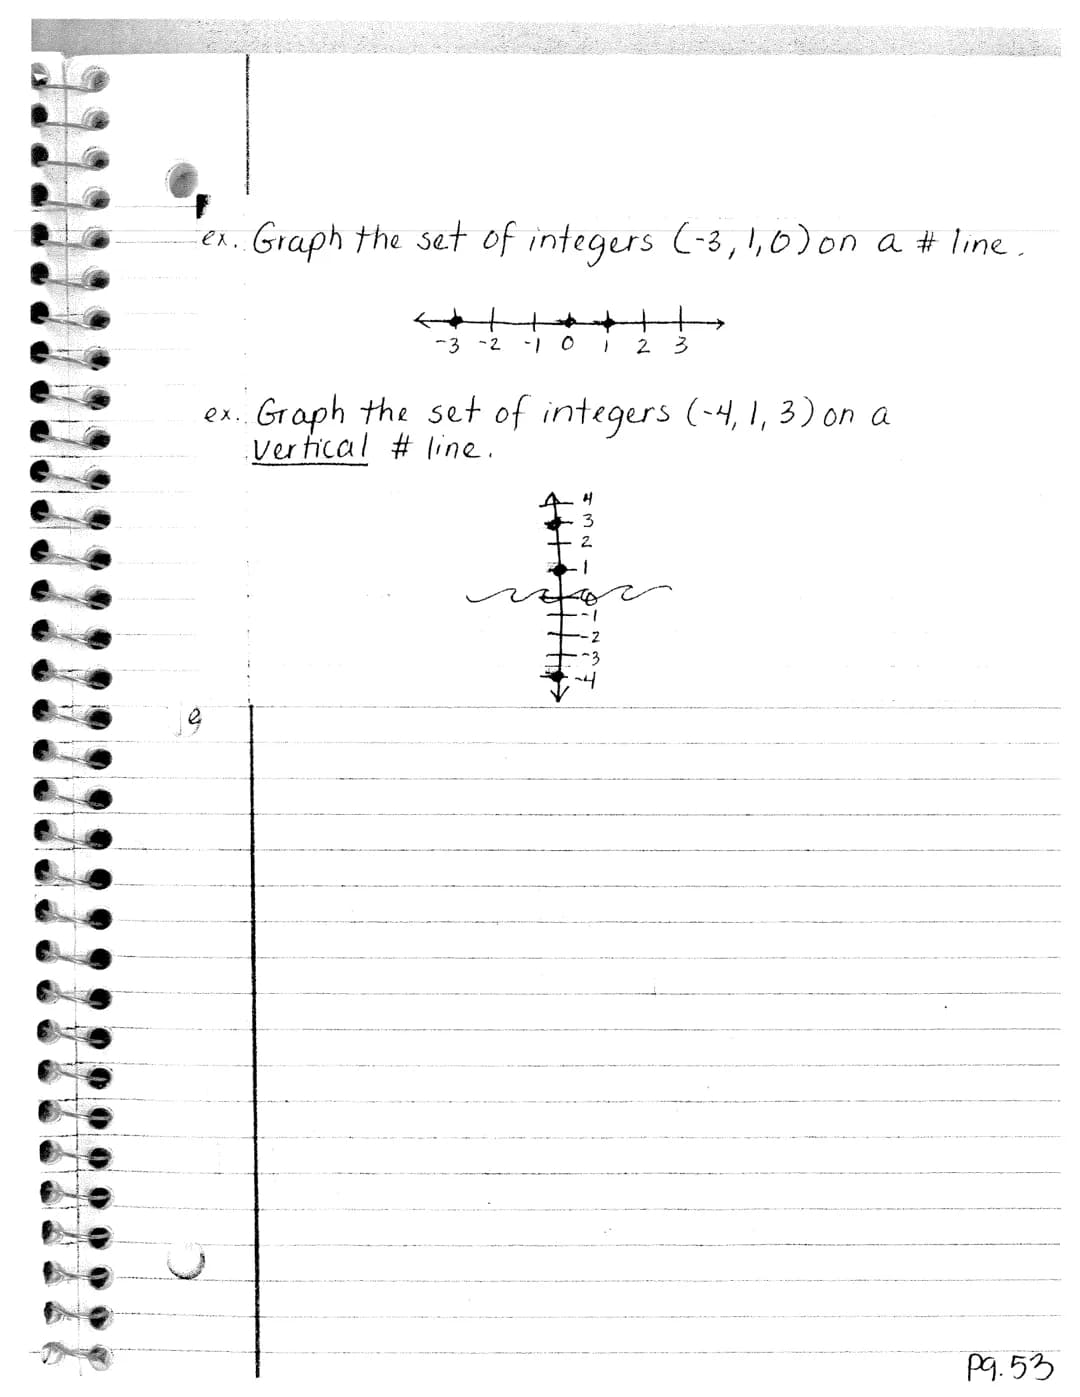 ex. Graph the set of integers (-3, 1, 0) on a # line.
-3 -2 -1 0 1 2 3
ex. Graph the set of integers (-4, 1, 3) on a
vertical # line.
4
3
2
1
0
-1
-2
-3
-4
pg. 53